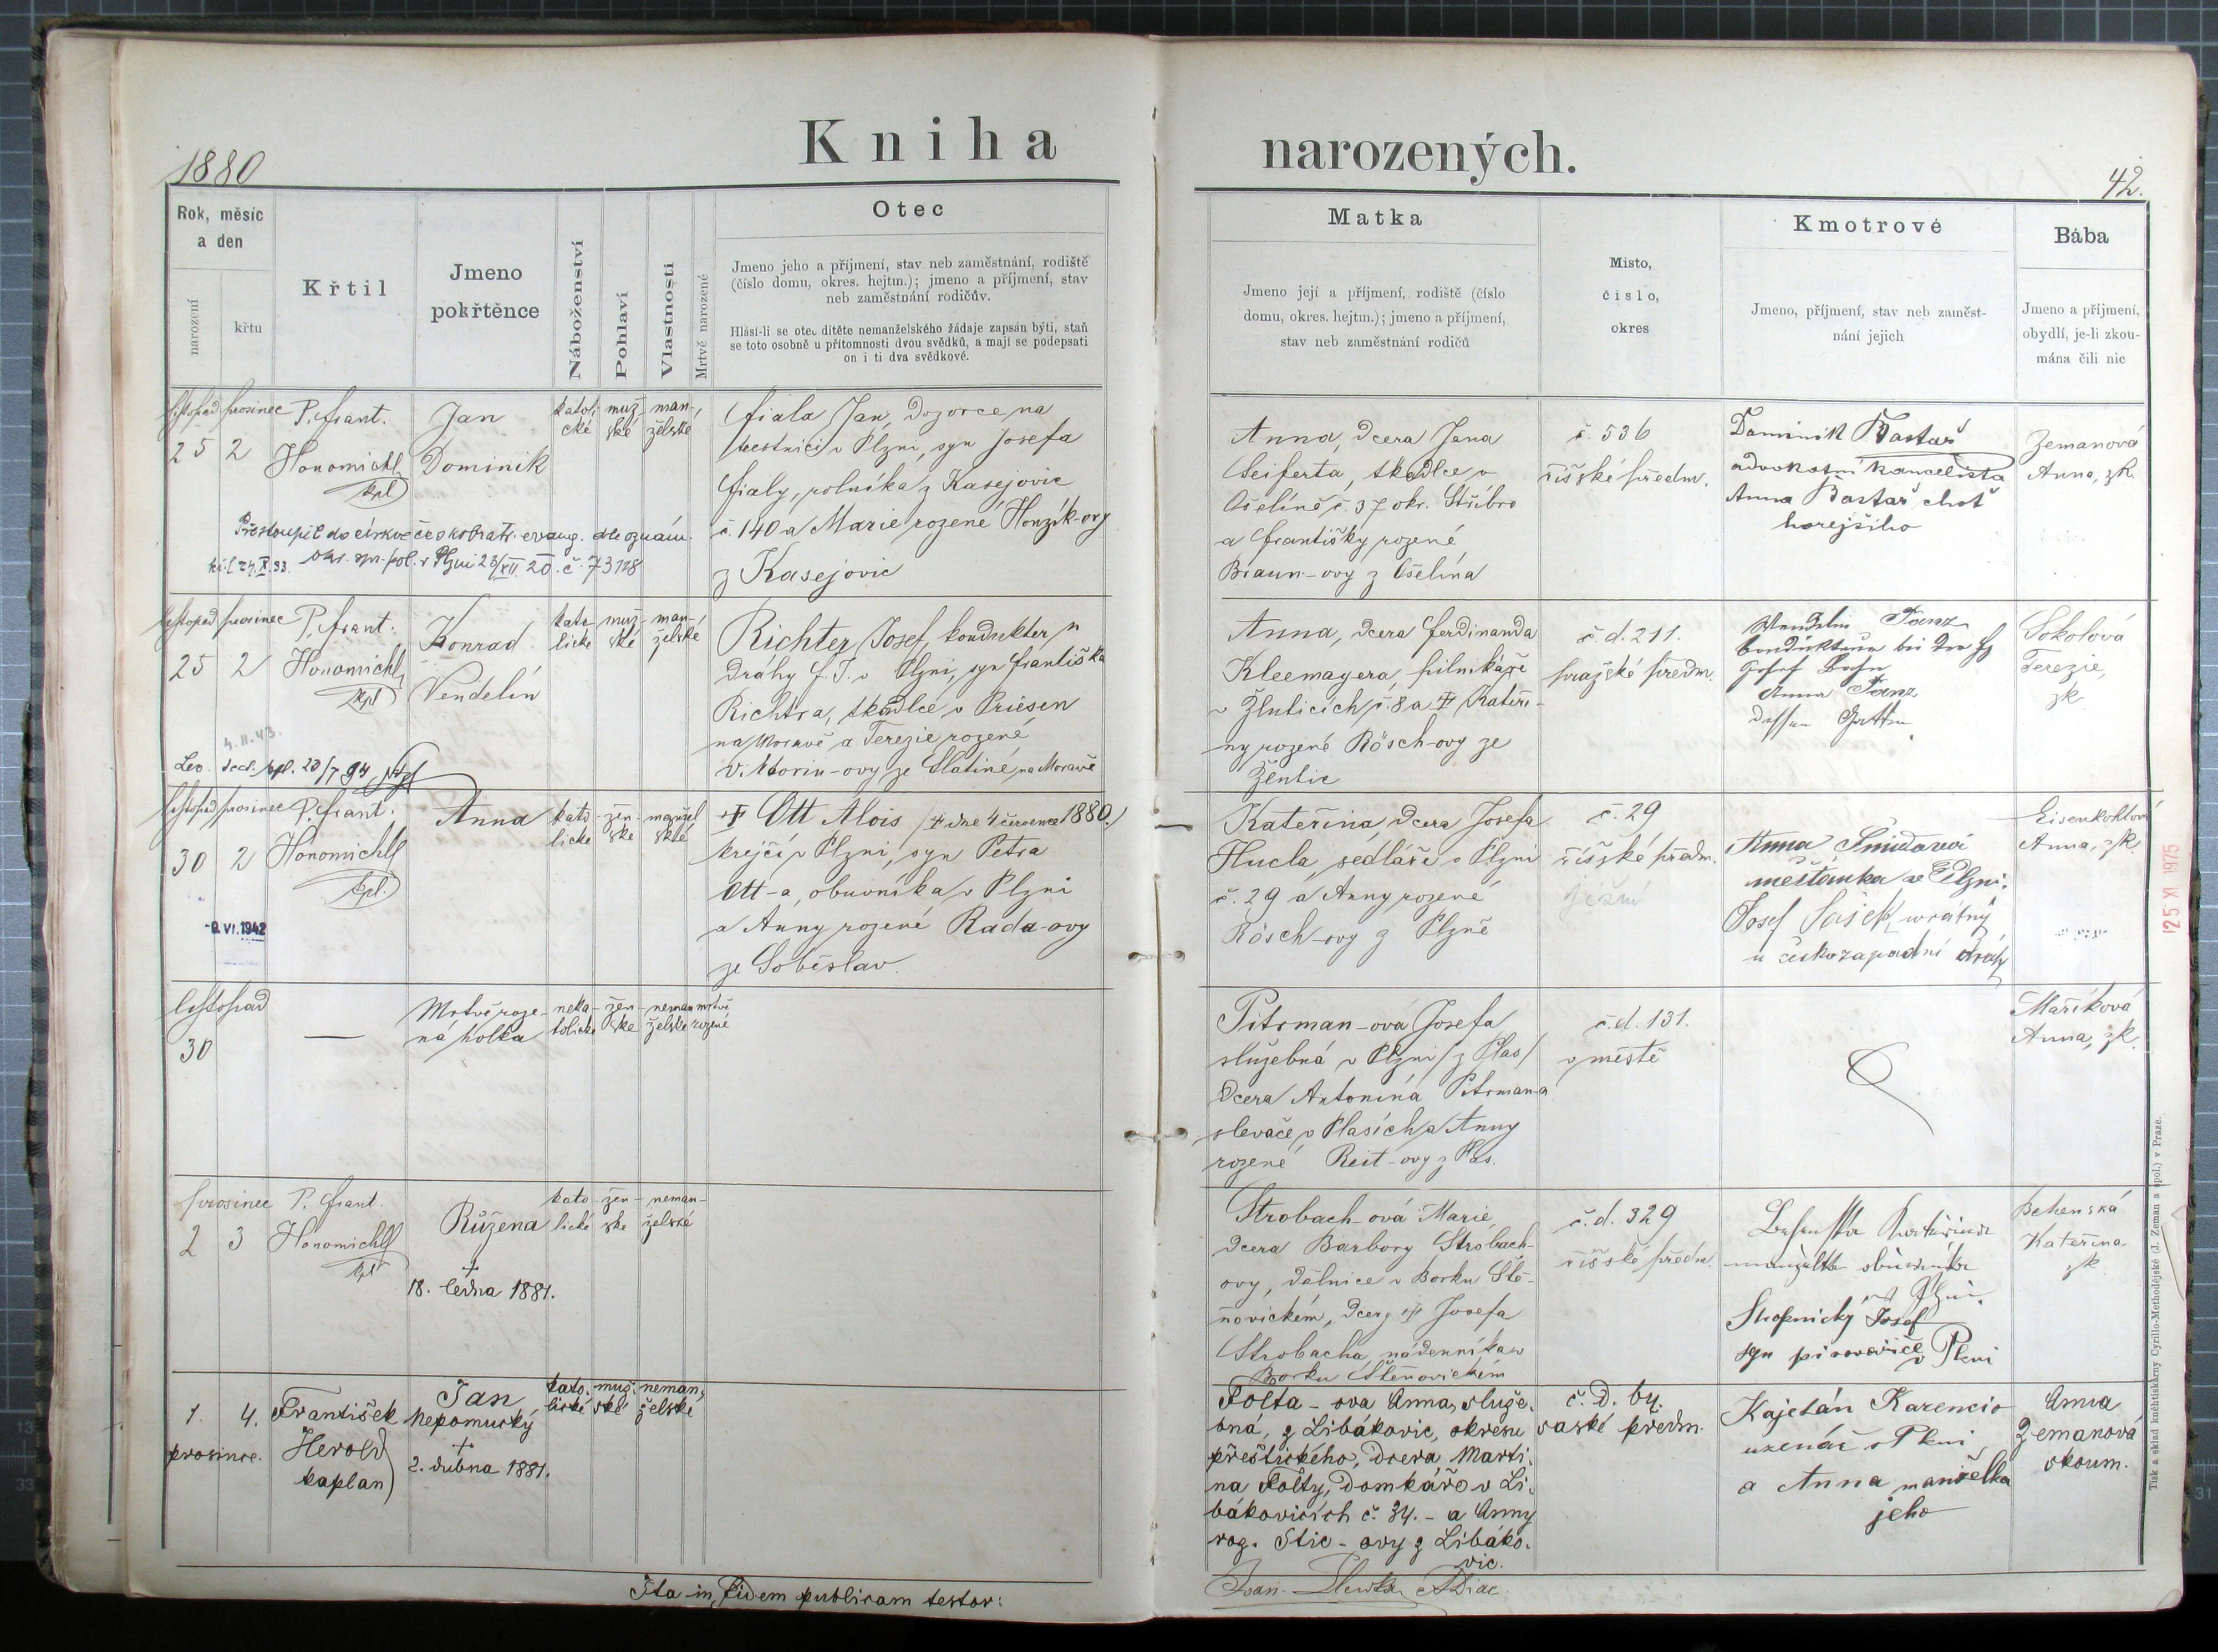 1880
Kniha
narozených.
42.
Rok, měsíc a den
narození
křtu
Křtil
Jmeno pokřtěnce
Náboženství
Pohlaví
Vlastnosti
Mrtvě narozené
Otec
Jmeno jeho a příjmení, stav neb zaměstnání, rodiště
(číslo domu, okres. hejtm.); jmeno a příjmení, stav
neb zaměstnání rodičův.
Hlásí-li se otec dítěte nemanželského žádaje zapsán býti, staň
se toto osobně u přítomnosti dvou svědků, a mají se podepsati
on i ti dva svědkové.
Matka
Jmeno její a příjmení, rodiště (číslo
domu, okres. hejtm.); jmeno a příjmení,
stav neb zaměstnání rodičů
Místo,
číslo,
okres
Kmotrové
Jmeno, příjmení, stav neb zaměst-
nání jejich
Bába
Jmeno a příjmení,
obydlí, je-li zkou-
mána čili nic
listopad prosinec
25 2
P. Frant.
Honomichl
kpl
Jan
Dominik
katoli
cké
muž
ské
man-
želské
Fiala Jan, dozorce na
trestnici v Plzni, syn Josefa
Fialy, rolníka z Kasejovic
č. 140 a Marie rozené Honzík-ovy
z Kasejovic
Přestoupil do církve českobratr. evang. dle oznám.
okr. spr. pol. v Plzni 23/XII. 20. č. 73128
Anna, dcera Jana
Seiferta, tkadlce v
Ošelíně č. 37 okr. Stříbro
a Františky rozené
Braun-ovy z Ošelína
č. 536
říšské předm.
Dominik Bastař
advokatní kancelista
Anna Bastař choť
horejšiho
Zemanová
Anna, zk.
listopad prosinec
25 2
P. Frant.
Honomichl
kpl
Konrad
Vendelín
kato-
lické
muž-
ské
man-
želské
Richter Josef, kondukter p
dráhy F. J. v Plzni, syn Františka
Richtra, tkadlce v Priesen
na Moravě a Terezie rozené
Viktorin-ovy ze Slatiné na Moravě
4. II. 43.
Anna, dcera Ferdinanda
Kleemayera, pilnikáře
v Žluticích č. 8 a † Kateři-
ny rozené Rösch-ovy ze
Žlutic
č. d. 211.
pražské předm.
Wendelin Panz
Conducteur bei der
Josef Bahn
Anna Panz
dessen Gattin
Sokolová
Terezie,
zk
listopad prosinec
30 2
P. Frant.
Honomichl
kpl.
Anna
kato-
lické
žen-
ské
manžel
ské
† Ott Alois († dne 4 července 1880.)
krejčí v Plzni, syn Petra
Ott-a, obuvníka v Plzni
a Anny rozené Rada-ovy
ze Soběslav.
-9. VI. 1942
Kateřina, dcera Josefa
Hucla, sedláře v Plzni
č. 29 a Anny rozené
Rösch-ovy z Plzně
č. 29
říšské předm.
jižní
Anna Šmidová
měšťanka ve Plzni.
Josef Sašek, wrátný
u českozápadní dráhy
Anna, zk.
125 XI 1975
listopad
30
—
Mrtvě roze-
ná holka
neka-
tolické
žen-
ské
neman-
želské
mrtvě
rozené
Pitrman-ová Josefa
služebná v Plzni /z Plas/
dcera Antonína Pitrmana
slevače v Plasích a Anny
rozené Reit-ovy z Plas.
č. d. 131.
v městě
Maříková
Anna, zk.
prosinec
2 3
P. Frant.
Honomichl
kpl
Růžena
†
18. ledna 1881.
kato-
lické
žen-
ské
neman-
želské
Strobach-ová Marie,
dcera Barbory Strobach-
ovy, dělnice v Borku Ště-
novickém, dcery † Josefa
Strobacha, nádenníka v
Borku Štěnovickém
č. d. 329
říšské předm.
manželka obuvníka
v Plzni.
Stopnicky Josef
syn pivovariče v Plzni
Behenská
Kateřina
zk
1. 4.
prosince.
František
Herold
kaplan
Jan
Nepomucký
†
2. dubna 1881.
kato-
lické
muž-
ské
neman-
želské
Folta-ova Anna, služe-
bná, z Libákovic, okresu
přeštického, dcera Marti-
na Folty, domkáře v Li-
bákovicích č. 34. - a Anny
roz. Stic-ovy z Libáko-
vic.
č. d. 64.
saské předm.
Kajetán Karencio
uzenář v Plzni
a Anna manželka
jeho
Anna
Zemanová
skoum.
Ita in fidem publicam testor:
Tisk a sklad knihtiskárny Cyrillo-Methodějské (J. Zeman a spol.) v Praze.